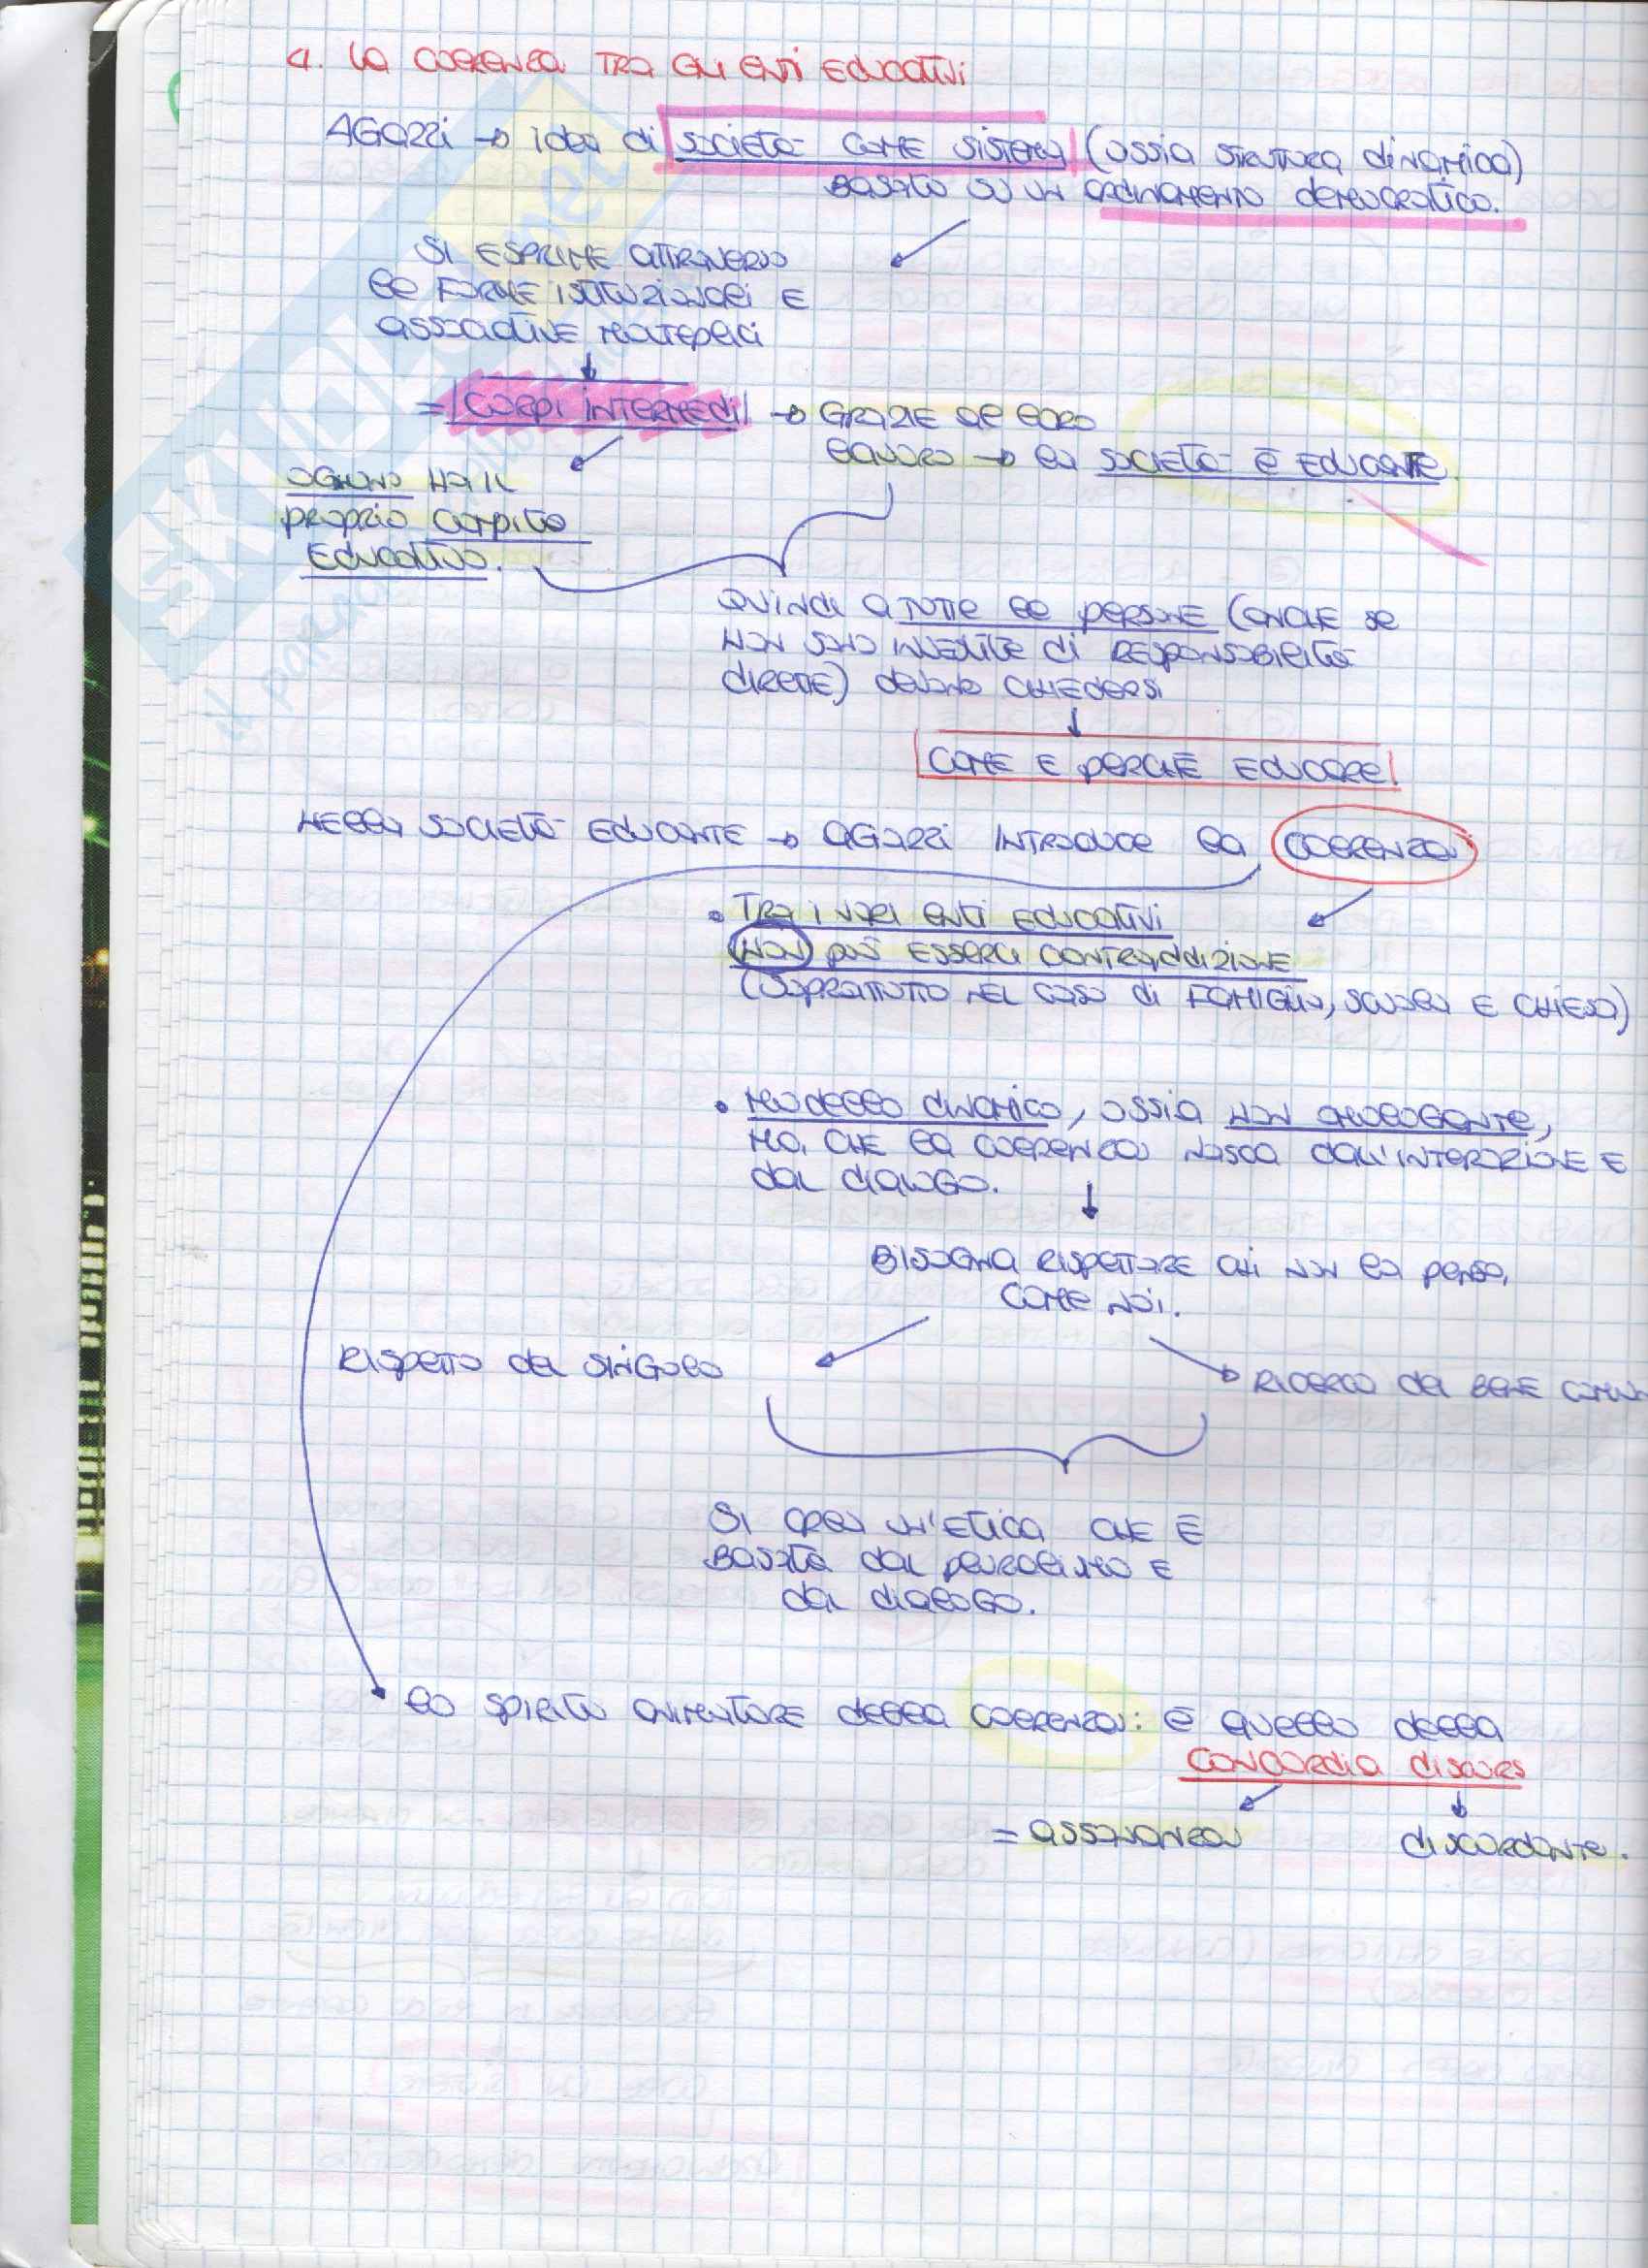 4. LA COERENZA TRA GLI ENTI EDUCATIVI
AGAZZI → idea di società come sistema (ossia struttura dinamica)
basato su un ordinamento democratico.
SI ESPRIME attraverso
le FORME ISTITUZIONALI E
associative molteplici
= CORPI INTERMEDI → GRAZIE al loro
lavoro → la società è EDUCANTE.
OGNUNO HA IL
proprio compito
Educativo.
Quindi a tutte le persone (anche se
non sono investite di responsabilità
dirette) devono chiedersi
↓
COME E perché educare!
Nella società educante → Agazzi introduce la coerenza
• TRA i vari enti educativi
NON può esserci contraddizione
(soprattutto nel caso di famiglia, scuola e chiesa)
• modello dinamico, ossia non omologante,
ma, che la coerenza nasca dall'interazione e
dal dialogo.
↓
Bisogna rispettare chi non la pensa,
come noi.
Rispetto del singolo
→ Ricerca del bene comun
Si crea un'etica che è
basata dal pluralismo e
dal dialogo.
lo spirito animatore della coerenza: è quello della
concordia discors
= assonanza
discordante.
SKUOLA.net